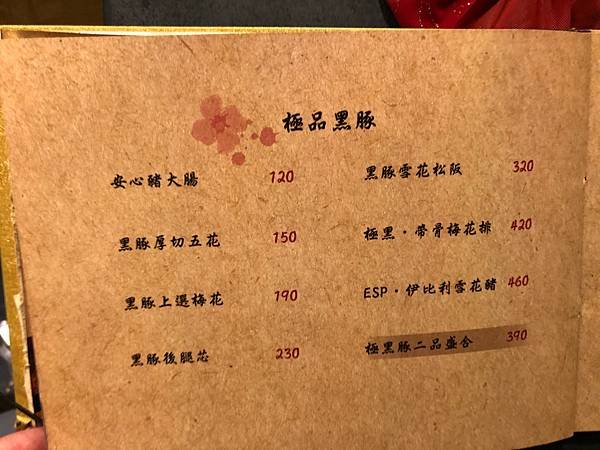 極品黑豚
安心豬大腸 120
黑豚厚切五花 150
黑豚上選梅花 190
黑豚後腿芯 230
黑豚雪花松阪 320
極黑・帶骨梅花排 420
ESP・伊比利雪花豬 460
極黑豚二品盛合 390